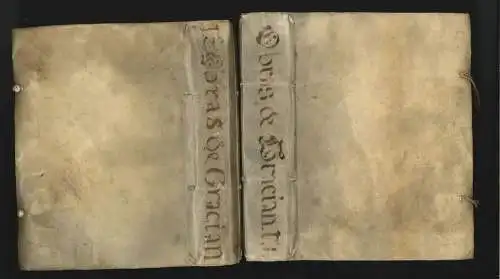 Obras de Gracian
Obras de Gracian. t.